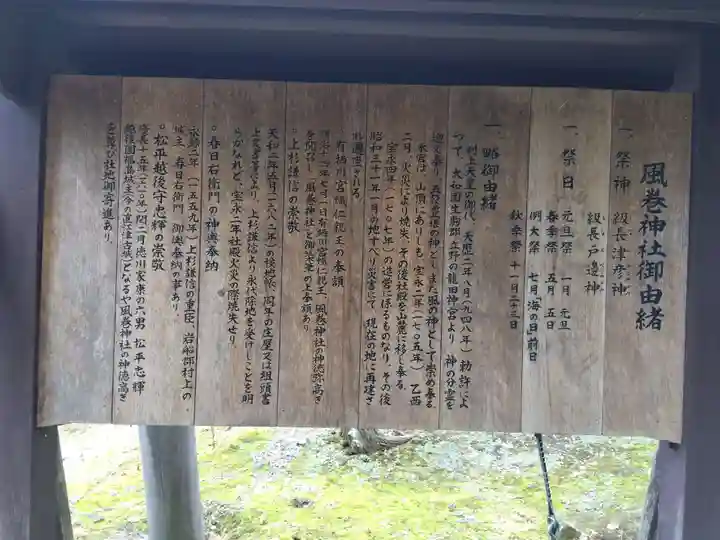 風巻神社御由緒
一、祭神 級長津彦神
級長戸邊神
一、祭日 元旦祭 一月 元旦
春季祭 五月 五日
例大祭 七月「海の日」前日
秋季祭 十一月二十三日
一、略御由緒
村上天皇の御代、天暦二年八月(九四八年)勅許によ
つて、大和国生駒郡立野の龍田神宮より 神の分霊を
迎え奉り、五穀豊穣の神とし、また風の神として崇め奉る
本宮は、山頂にありしも、宝永二年(一七〇五年) 乙酉
二月、火災により焼失、その後社殿を山麓に移し奉る
宝永四年(一七〇七年)の造営に係るものなり、その後
昭和三十一年一月の地すべり災害にて、現在の地に再建さ
れ遷座される
有栖川宮幟仁親王の奉額
七月一日有栖川宮幟仁親王、風巻神社の神徳弥高き
を聞召し「風巻神社」と御染筆の上奉額あり
○上杉謙信の崇敬
天和二年五月(一六八二年)の検地帳、同年の庄屋又は組頭書
上文書等により、上杉謙信より永代除地を受けしことを明
らかなれど、宝永二年社殿火災の際焼失せり
○春日右衛門の神輿奉納
永禄二年(一五五九年)上杉謙信の重臣、岩船郡村上の
城主、春日右衛門 御輿奉納の事あり
○松平越後守忠輝の崇敬
慶長十五年(一六一〇年)閏二月徳川家康の六男 松平忠輝
越後国福嶋城主(今の直江津古城)となるや風巻神社の神徳高き
を尊び社地御寄進あり